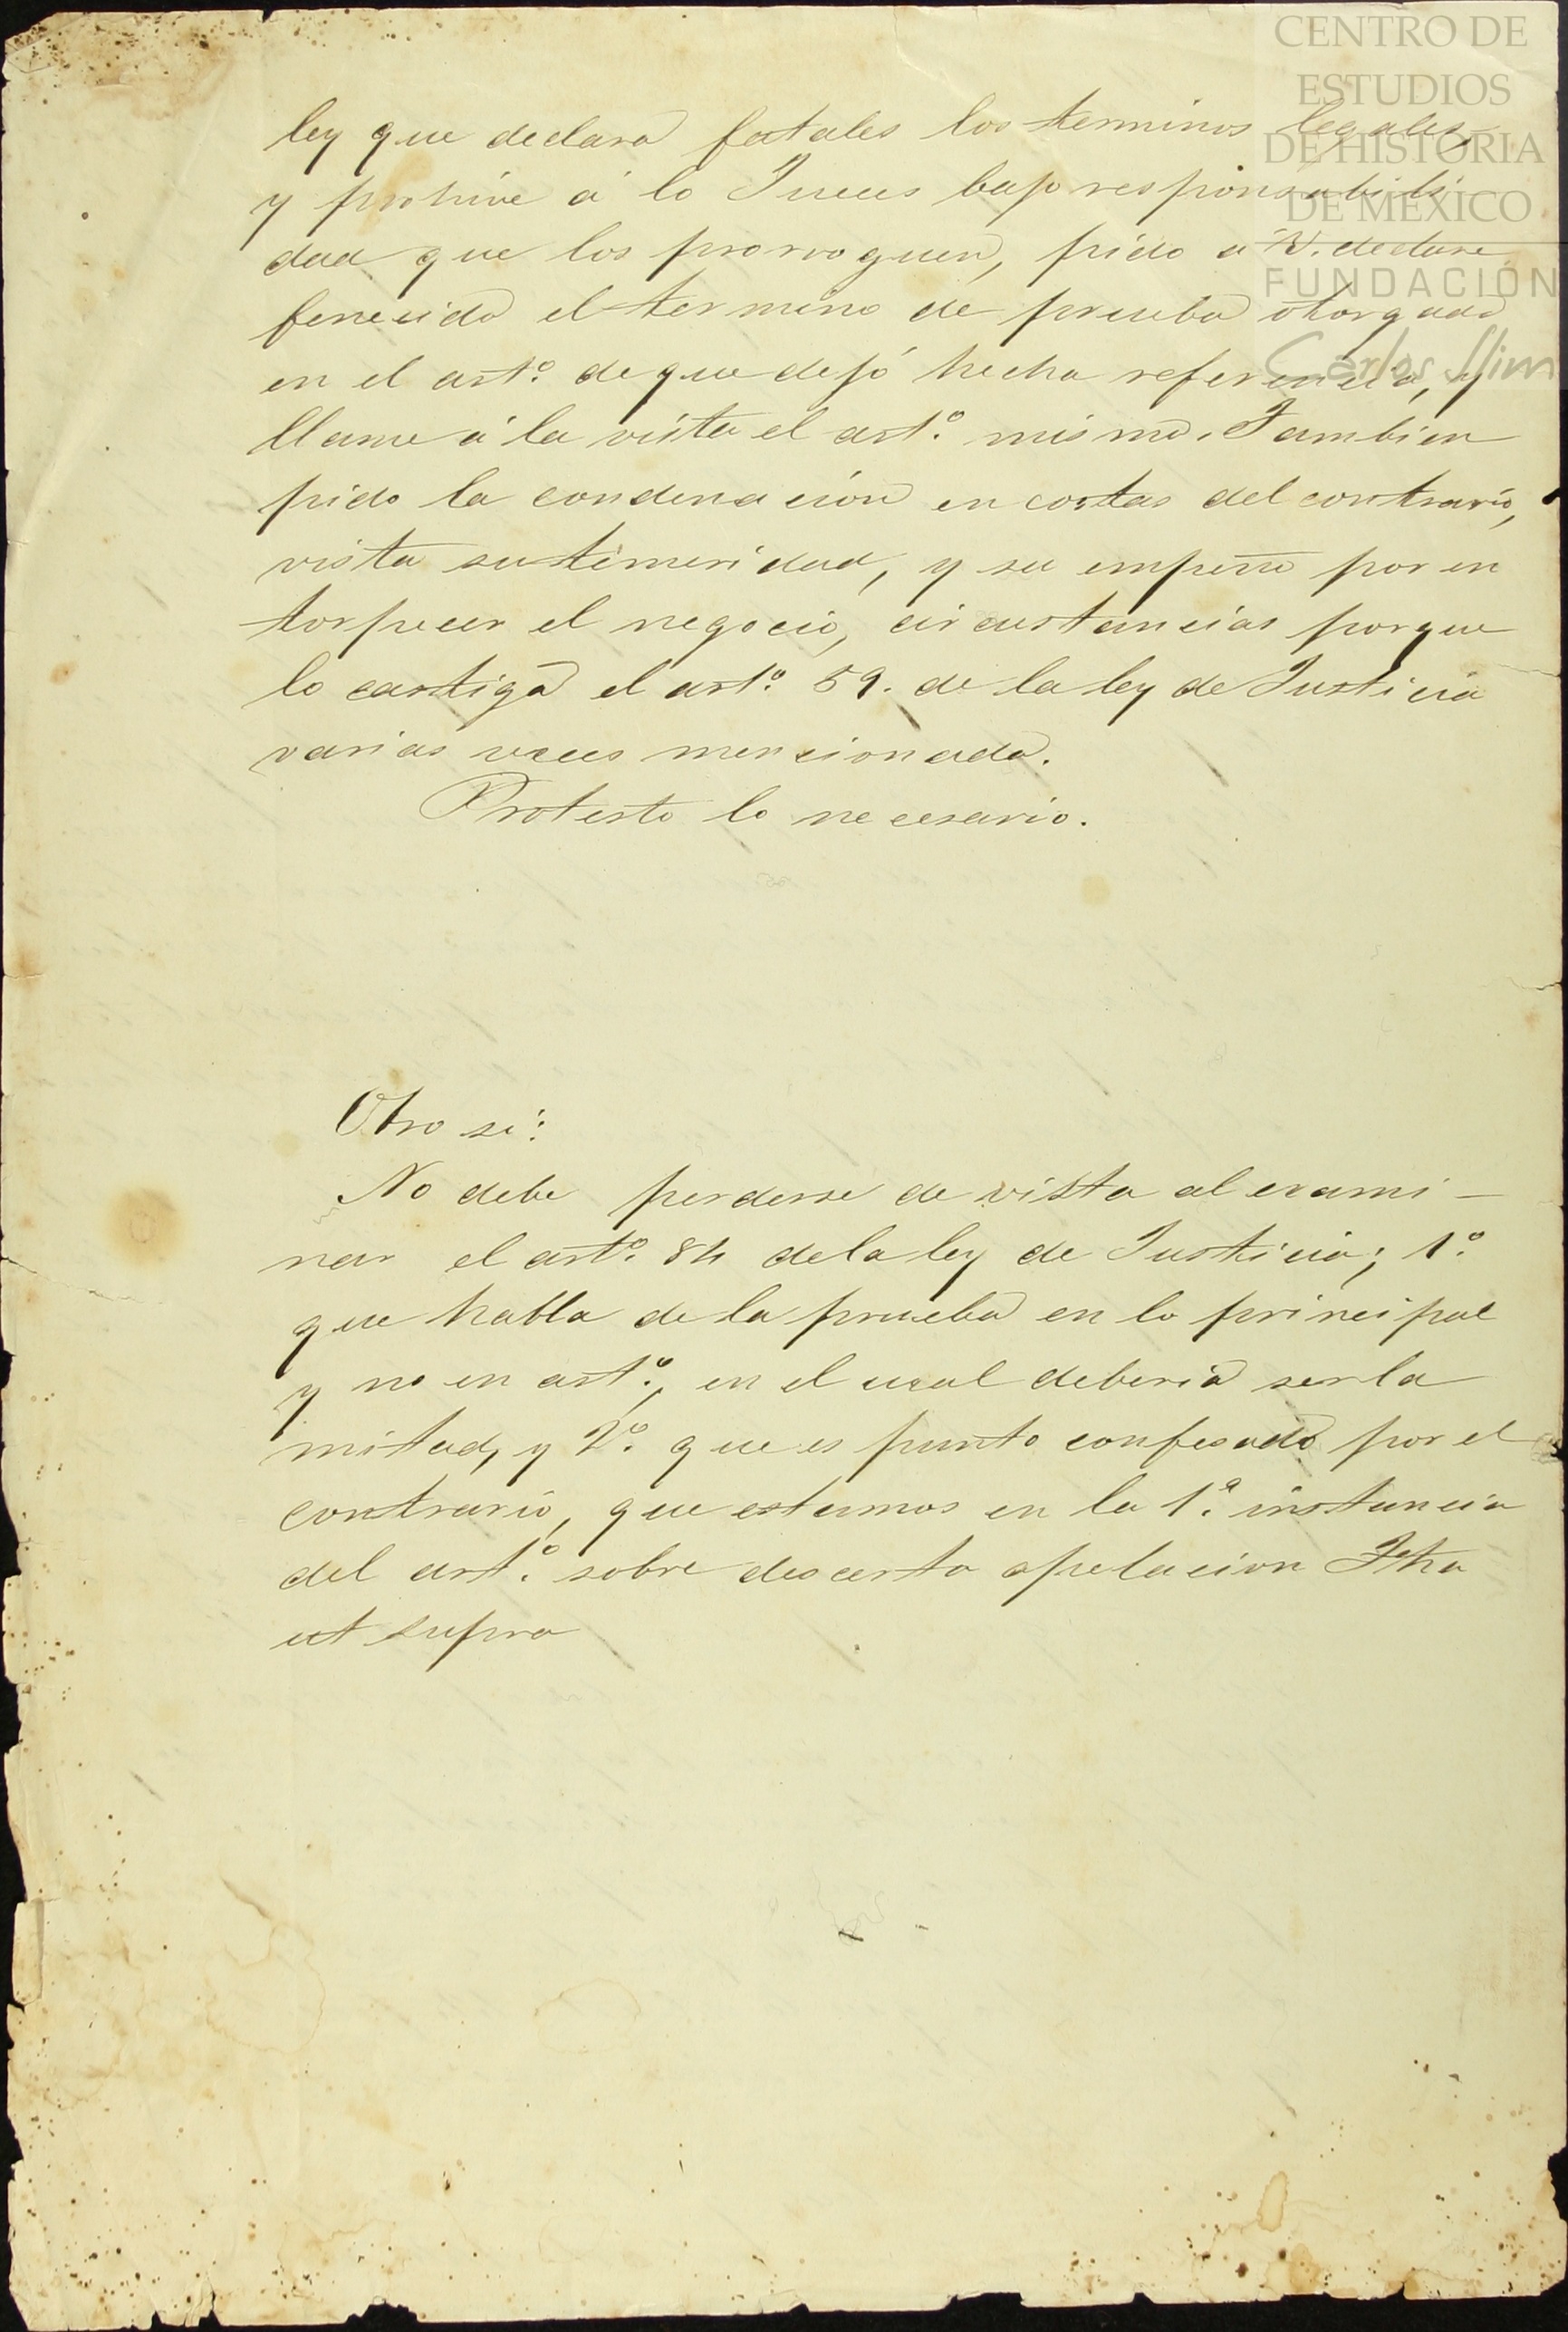 CENTRO DE
ESTUDIOS
DE HISTORIA
DE MÉXICO
FUNDACIÓN
Carlos Slim
ley que declara fatales los terminos legales,
y prohive á lo Jueces bajo responsabili
dad que los prorroguen, pido a V. declare
fenecido el termino de prueba otorgado
en el art.º de que dejó hecha referencia, y
llame á la vista el art.º mismo. Tambien
pido la condenación en costas del contrario,
vista su temeridad, y su empeño por en
torpecer el negocio, circustancias porque
lo castiga el art.º 59. de la ley de Justicia
varias veces mencionada.
Protesto lo necesario.
Otro si:
No debe perderse de vista al exami-
nar el art.º 84 de la ley de Justicia; 1.º
que habla de la prueba en lo principal
y no en art.º, en el cual deberia ser la
mitad, y 2.º que es punto confesado por el
contrario, que estamos en la 1.ª instancia
del art.º sobre descerta apelacion Fha
ut supra